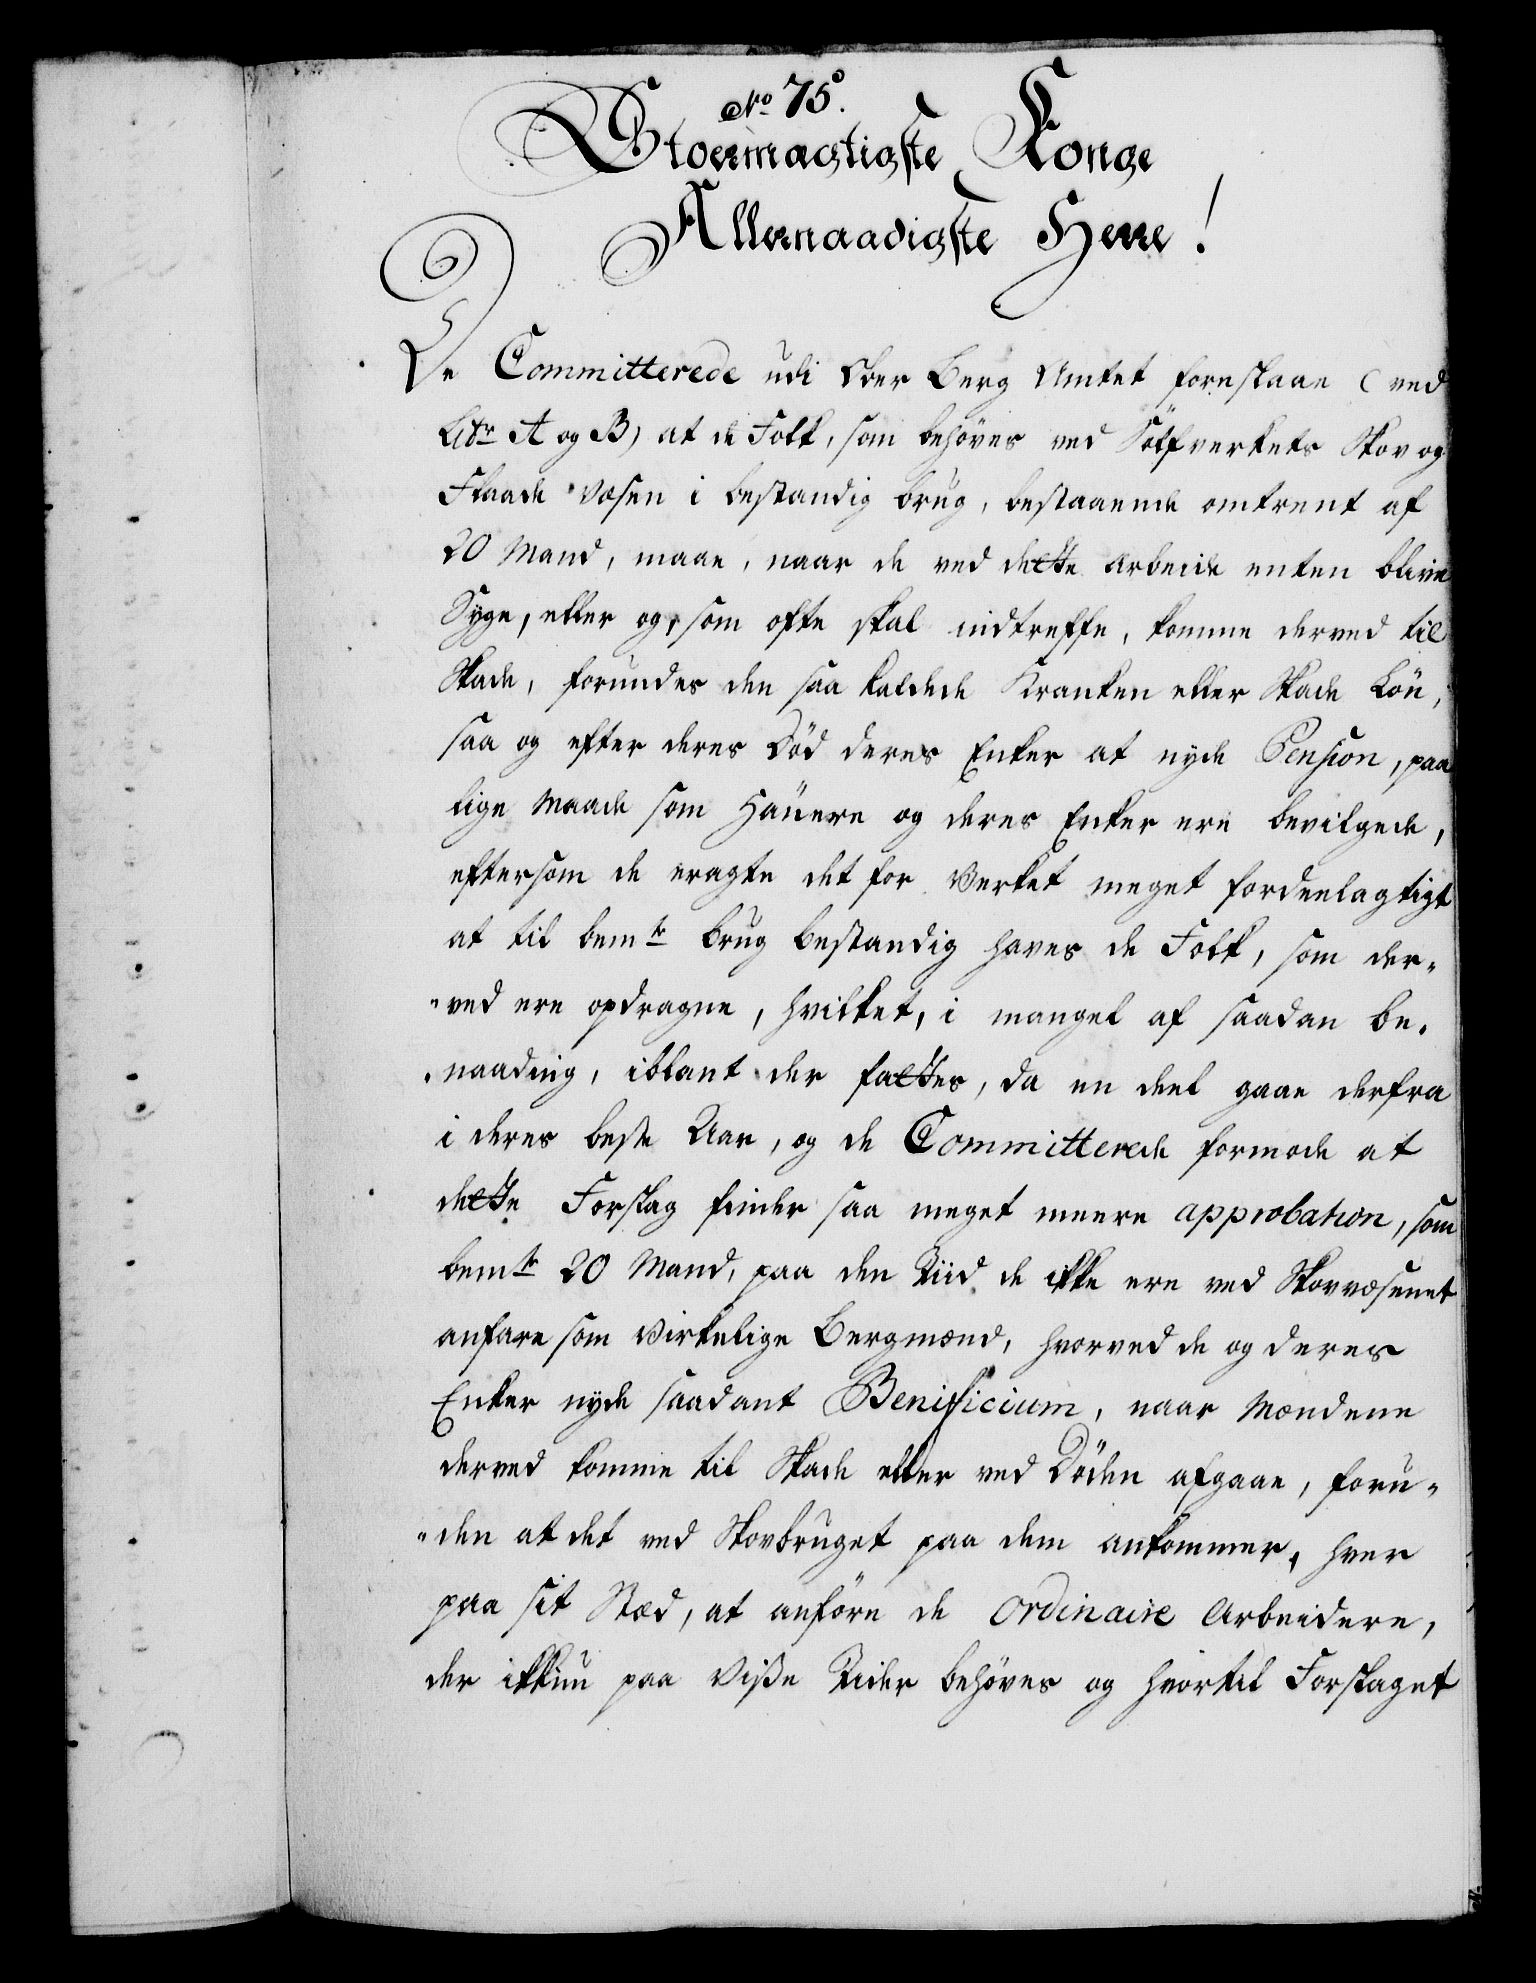 No 75.
Stormægtigste Konge
Allernaadigste Herre!
De Committerede udi Ober Berg Amtet forestaae (ved
Litr A og B) at de Folk, som behöves ved Sölfverkets Skov og
Flaade Væsen i bestandig brug, bestaaende omtrent af
20 Mand, maae, naar de ved dette Arbeide enten blive
Syge, eller og, som ofte skal indtreffe, komme derved til
Skade, forundes den saa kaldede Kranken eller Skade Lön,
saa og efter deres Död deres Enker at nyde Pension, paa
lige Maade som Häuere og deres Enker ere bevilgede,
eftersom de eragte det for Verket meget fordeelagtigt
at til bemte brug bestandig haves de Folk, som der-
-ved ere opdragne, hvilket, i mangel af saadan be-
-naading, iblant der fattes, da en deel gaae derfra
i deres beste Aar, og de Committerede formode at
dette Forslag finder saa meget meere approbation, som
bemte 20 Mand, paa den Tiid de ikke ere ved Skovvæsenet
anfare som virkelige Bergmænd, hvorved de og deres
Enker nyde saadant Benificium, naar Mændene
derved komme til Skade eller ved Döden afgaae, foru-
-den at det ved Skovbruget paa dem ankommer, hver
paa sit Stæd, at anföre de ordinaire Arbeidere,
der ikkun paa visse Tider behöves og hvortil Forslaget